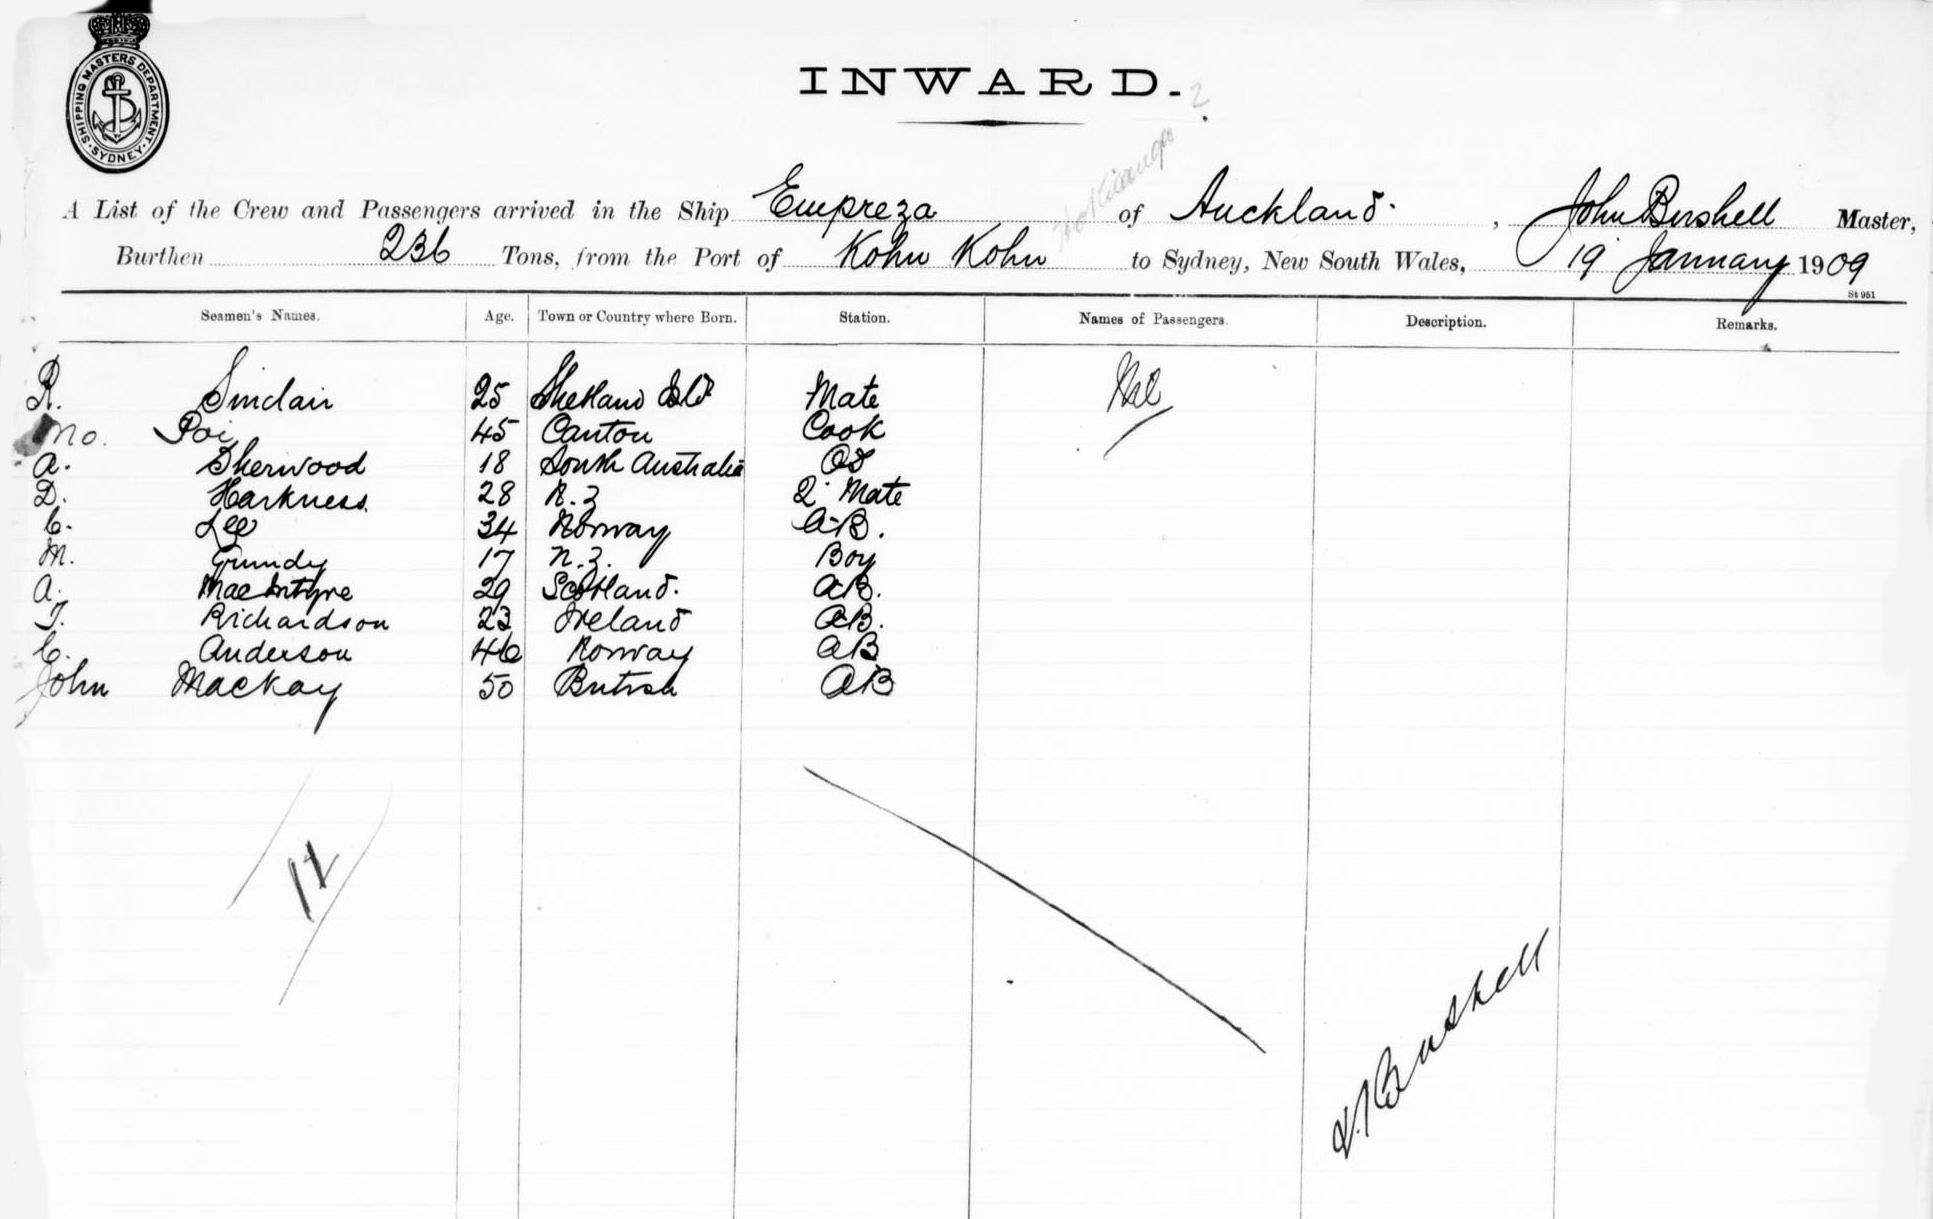 SHIPPING MASTERS DEPARTMENT
SYDNEY
INWARD.
?
Hokianga
A List of the Crew and Passengers arrived in the Ship Empreza of Auckland. , John Bushell Master,
Burthen 236 Tons, from the Port of Kohu Kohu to Sydney, New South Wales, 19 January 1909
St 951
Seamen's Names. Age. Town or Country where Born. Station. Names of Passengers. Description. Remarks.
R. Sinclair 25 Shetland Isld Mate Nil
Mo. Poi 45 Canton Cook
A. Sherwood 18 South Australia OS
D. Harkness 28 N.Z 2 Mate
C. Lee 34 Norway A.B.
M. Grundy 17 N.Z. Boy
A. MacIntyre 29 Scotland. AB.
T. Richardson 23 Ireland AB.
C. Anderson 46 Norway AB
John Mackay 50 British AB
11
J. Bushell